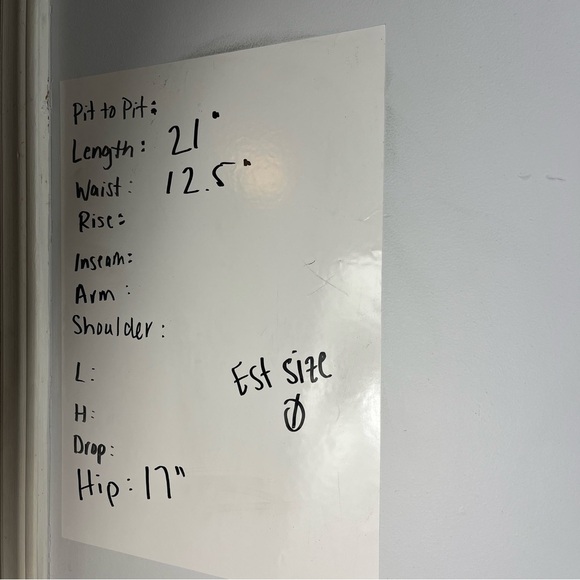 Pit to Pit:
Length: 21"
Waist: 12.5"
Rise:
Inseam:
Arm:
Shoulder:
L:
Est size
H:
0
Drop:
Hip: 17"